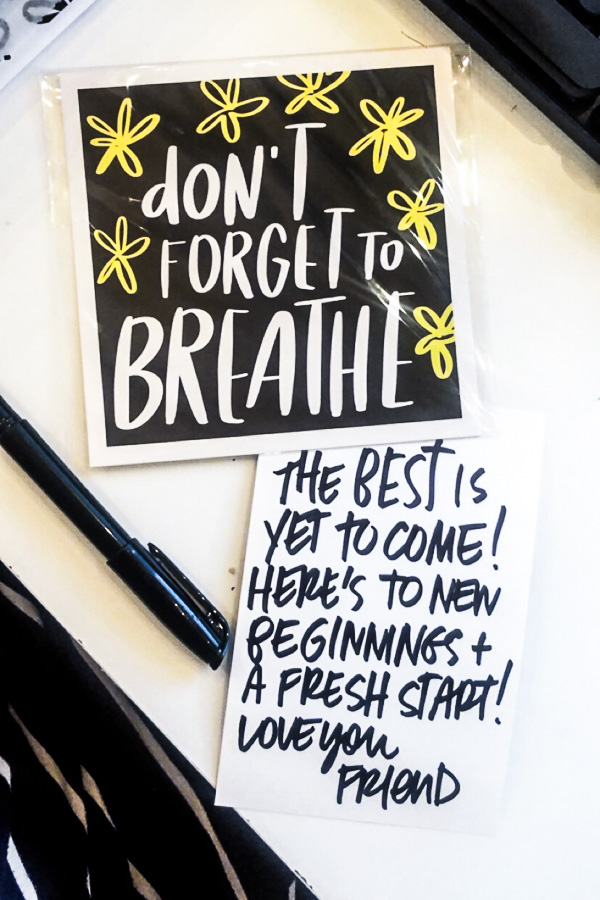 dON'T
FORGET TO
BREATHE
THE BEST IS
YET TO COME!
HERE'S TO NEW
BEGINNINGS +
A FRESH START!
LOVE YOU
FRIEND